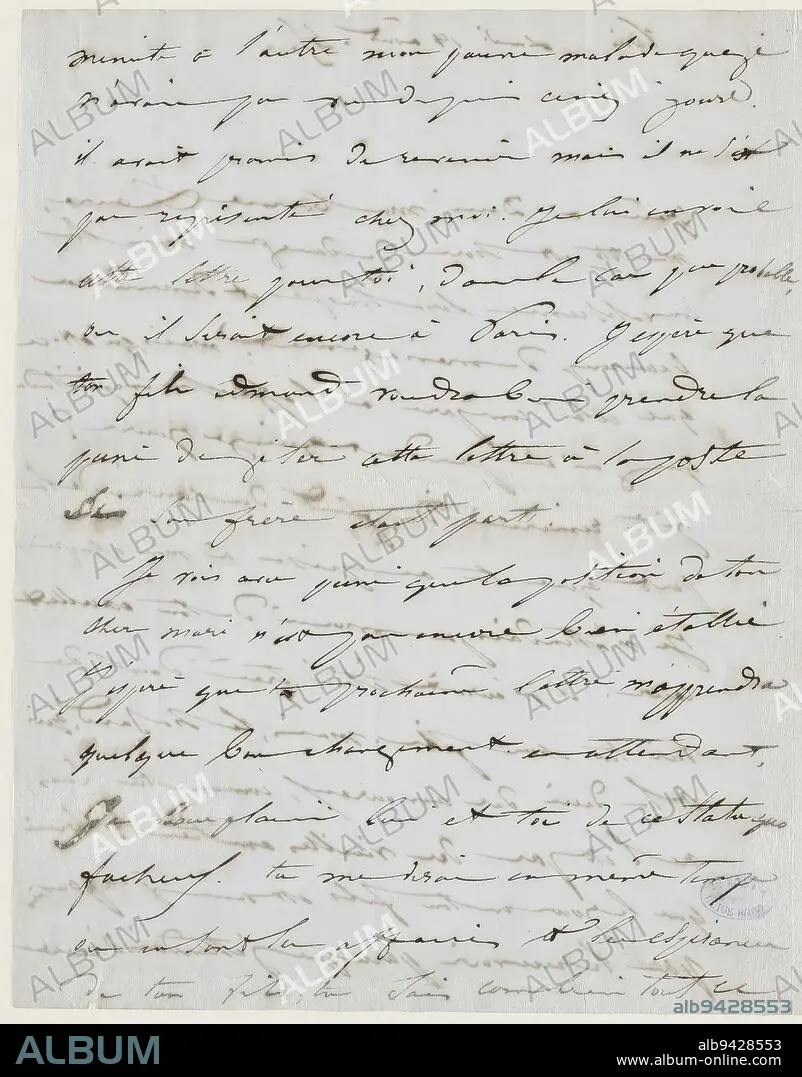 minute à l'autre mon jeune malade que je
n'avais pas vu depuis cinq jours.
il avait promis de revenir mais il ne s'est
pas représenté chez moi. Je lui envoie
cette lettre pour toi, dans le cas peu probable,
ou il serait encore à Paris. J'espère que
ton fils edmond voudra bien prendre la
peine de jeter cette lettre à la poste
Si son frère était parti.
Je vois avec peine que la position de ton
cher mari n'est pas encore bien établie
J'espère que ta prochaine lettre m'apprendra
quelque bon changement. en attendant,
Je vous plains lui et toi de ce statu quo
facheux. tu me diras en même temps
où en sont les affaires et les espérances
de ton fils, tu sais combien tout ce
ALBUM
alb9428553
ALBUM
alb9428553
www.album-online.com